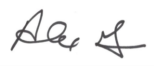 Alex J